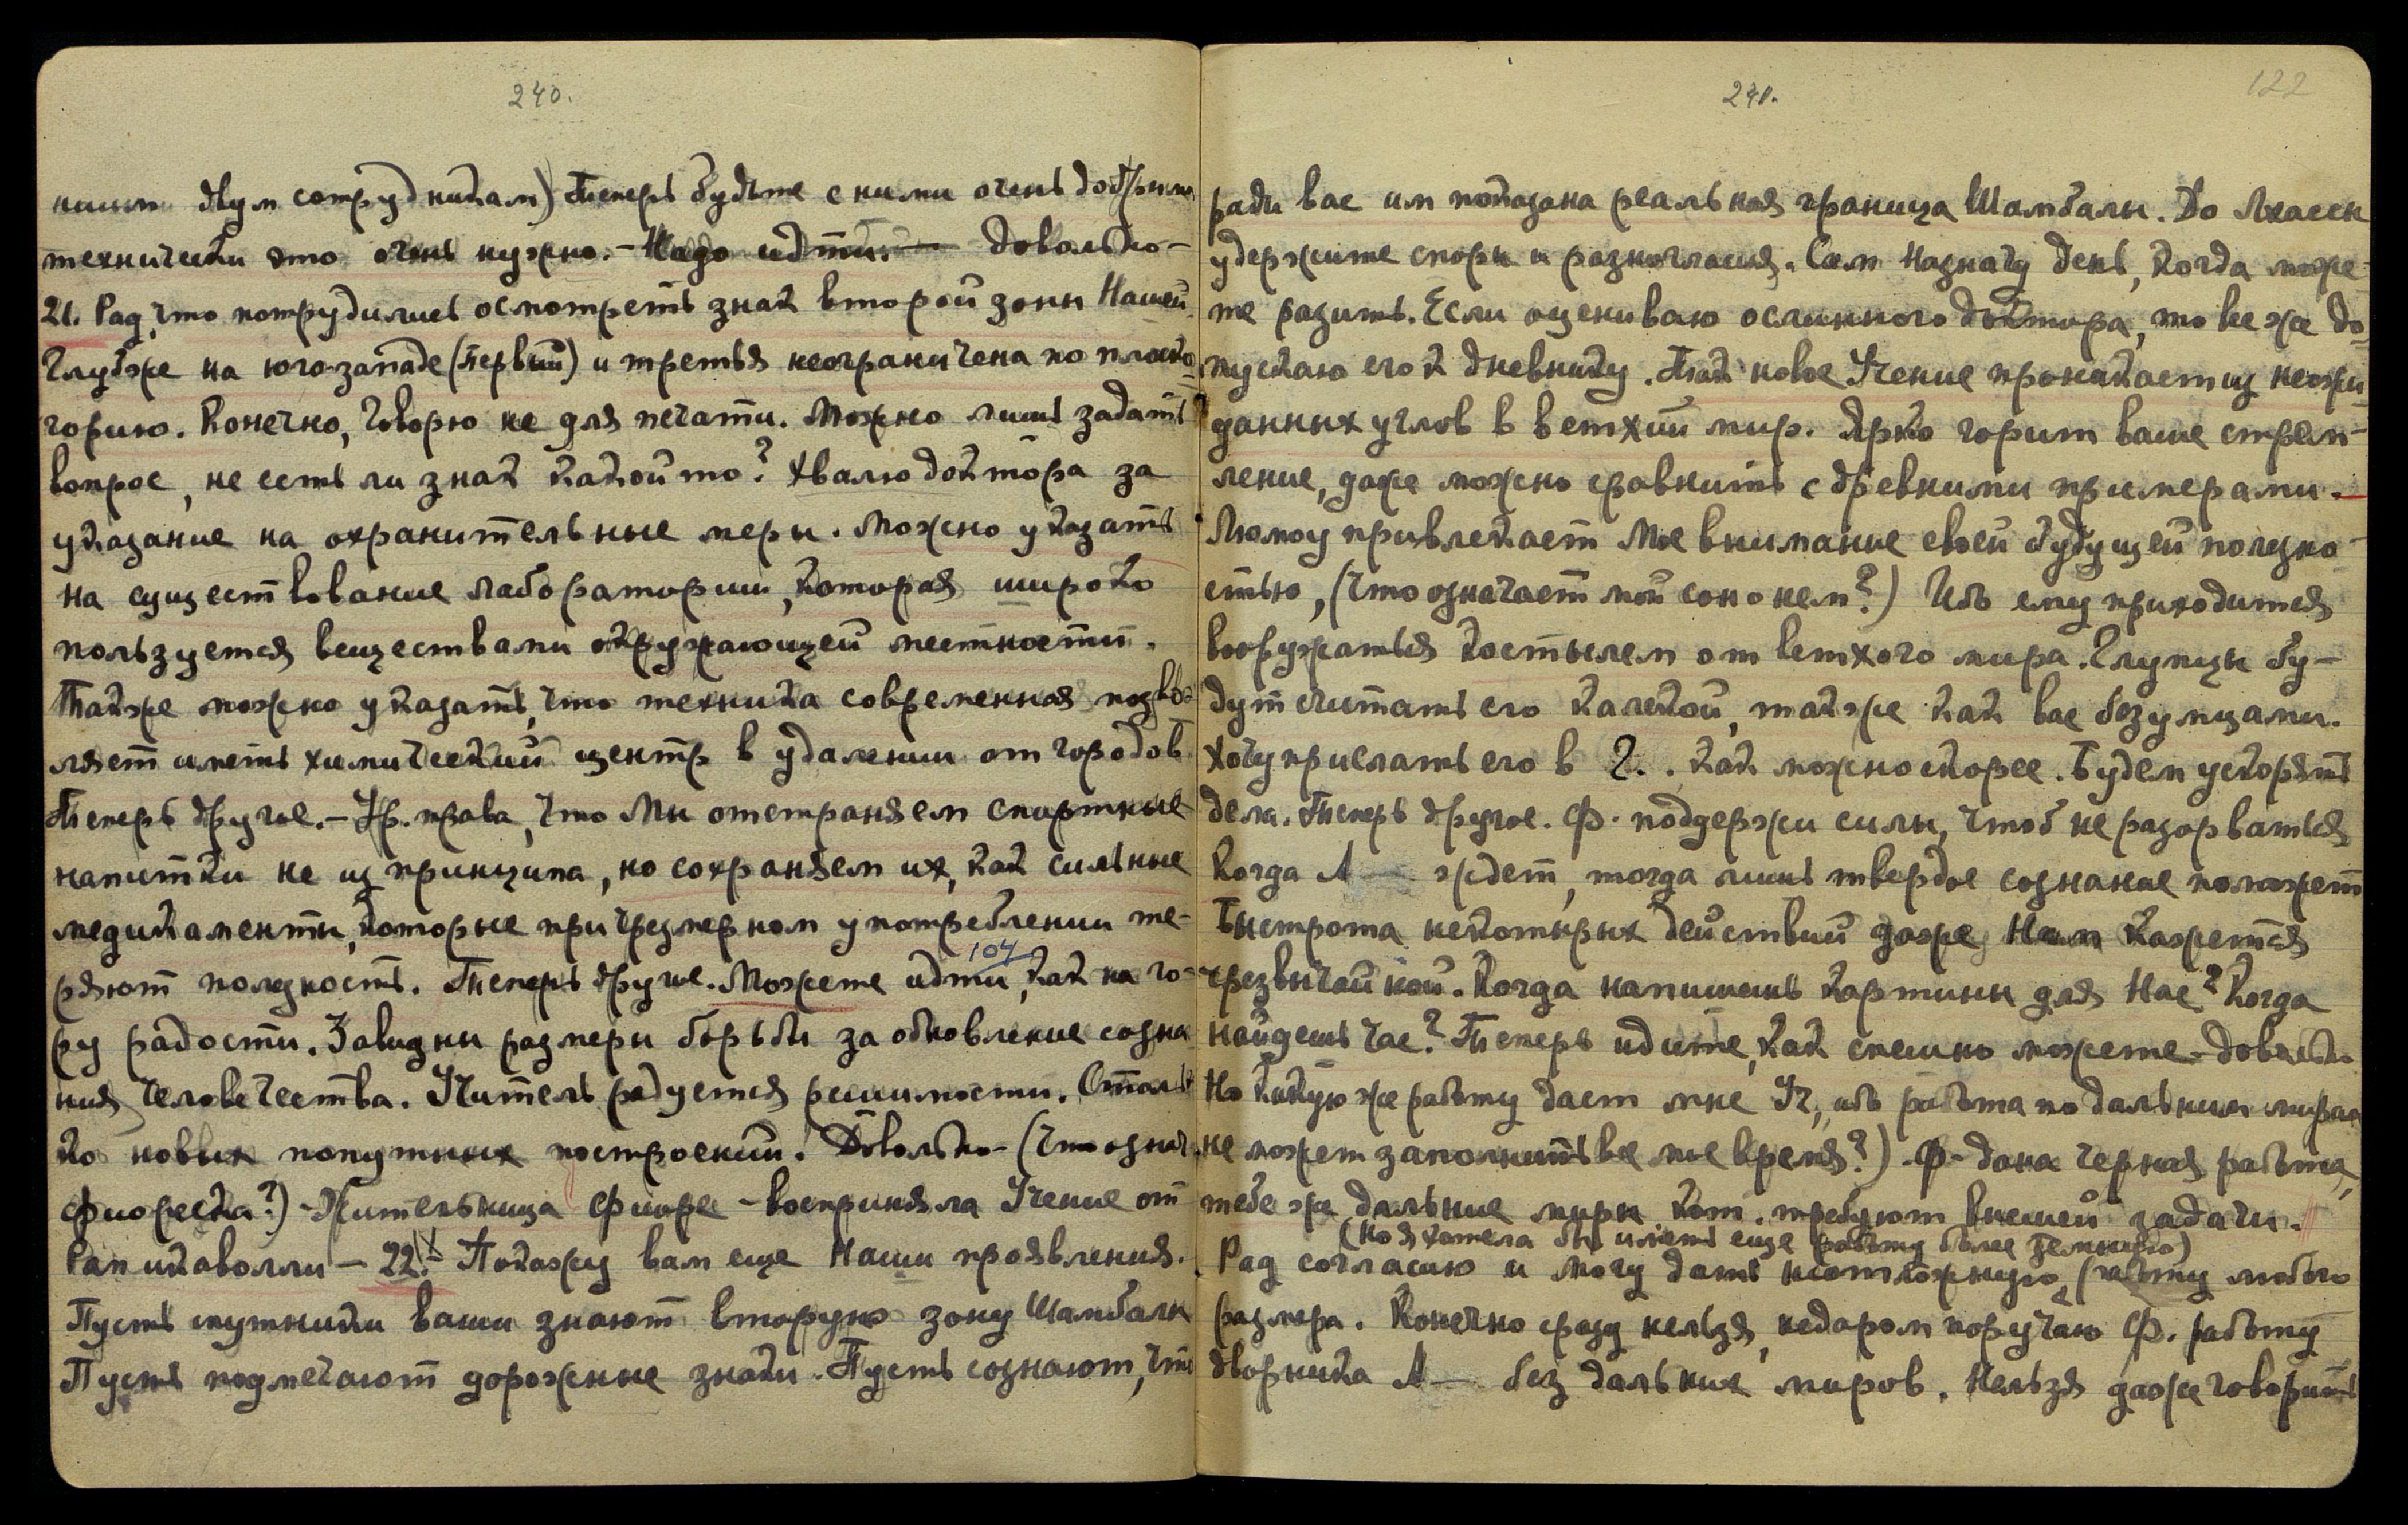 240.
ншим двум сотрудникам) Теперь будьте с ними очень добрыми
технически это очень нужно. – Надо идти. Довольно –
21. Рад, что потрудились осмотреть знак второй зоны Нашей.
Глубже на юго-западе (первый) и третья неограничена по плоско-
горию. Конечно, говорю не для печати. Можно лишь задать
вопрос, не есть ли знак какой то? Хвалю доктора за
указание на охранительные меры. Можно указать
на существование лаборатории, которая широко
пользуется веществами окружающей местности.
Также можно указать, что техника современная позво-
ляет иметь химический центр в удалении от городов.
Теперь другое. – Ур. права, что Мы отстраняем спиртные
напитки не из принципа, но сохраняем их, как сильные
медикаменты, которые при чрезмерном употреблении те-
104
ряют полезность. Теперь другое. Можете идти, как на го-
ру радости. Завидны размеры борьбы за обновление созна
ния человечества. Учитель радуется решимости. Столь
ко новых попутных построений. Довольно – (Что означ.
Фиореска?) – Жительница Фиоре – восприняла Учение от
Рапикаволли – 22. V Покажу вам еще Наши проявления.
Пусть спутники ваши знают вторую зону Шамбалы
Пусть подмечают дорожные знаки. Пусть сознают, что
241.
122
ради вас им показана реальная граница Шамбалы. До Лхассы
удержите споры и разногласия. Сам назначу день, когда може-
те разить. Если оцениваю ослиного доктора, то все же до-
пускаю его к дневнику. Так новое Учение проникает из неожи
данных углов в ветхий мир. Ярко горит ваше стрем-
ление, даже можно сравнить с древними примерами. –
Люмоу привлекает Мое внимание своей будущей полезно-
стью, (что означает мой сон о нем?) Ибо ему приходится
вооружаться костылем от ветхого мира. Глупцы бу-
дут считать его калекой, также как вас безумцами.
Хочу прислать его в Г. . как можно скорее. Будем ускорять
дела. Теперь другое. Ф. поддержи силы, чтоб не разорваться
Когда А – ждет, тогда лишь твердое сознание поможет
Быстрота некоторых действий даже Нам кажется
чрезвычайной. Когда напишешь картины для Нас? Когда
найдешь час? Теперь идите, как спешно можете – довольно
Но какую же работу дает мне Уч., ибо работа по дальним мирам
не может заполнить все мое время?) Ф – дана черная работа,
тебе же дальние миры кот. требуют внешней задачи.
(Но я хотела бы иметь еще работу более земную)
Рад согласию и могу дать неотложную работу любого
размера. Конечно сразу нельзя, недаром поручаю Ф. работу
дворника А – без дальних миров. Нельзя даже говорить